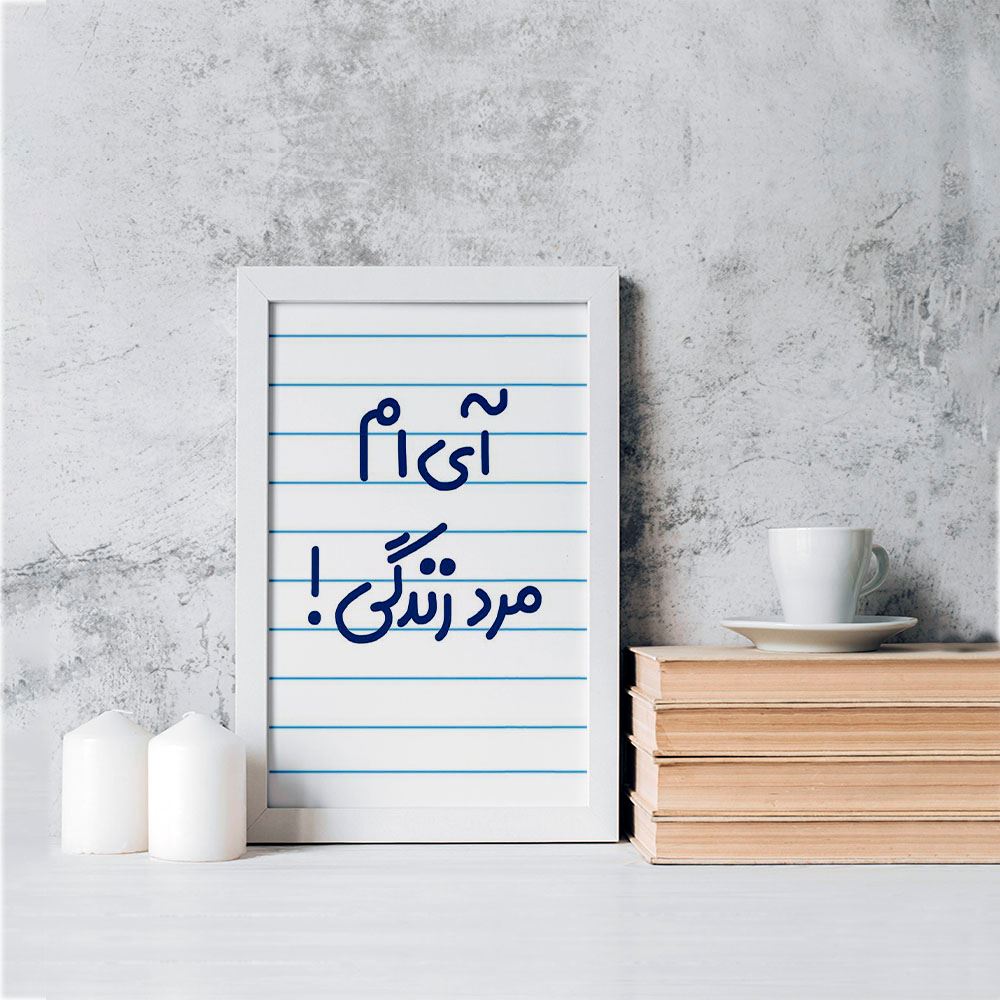 آی ام
مرد زندگی!